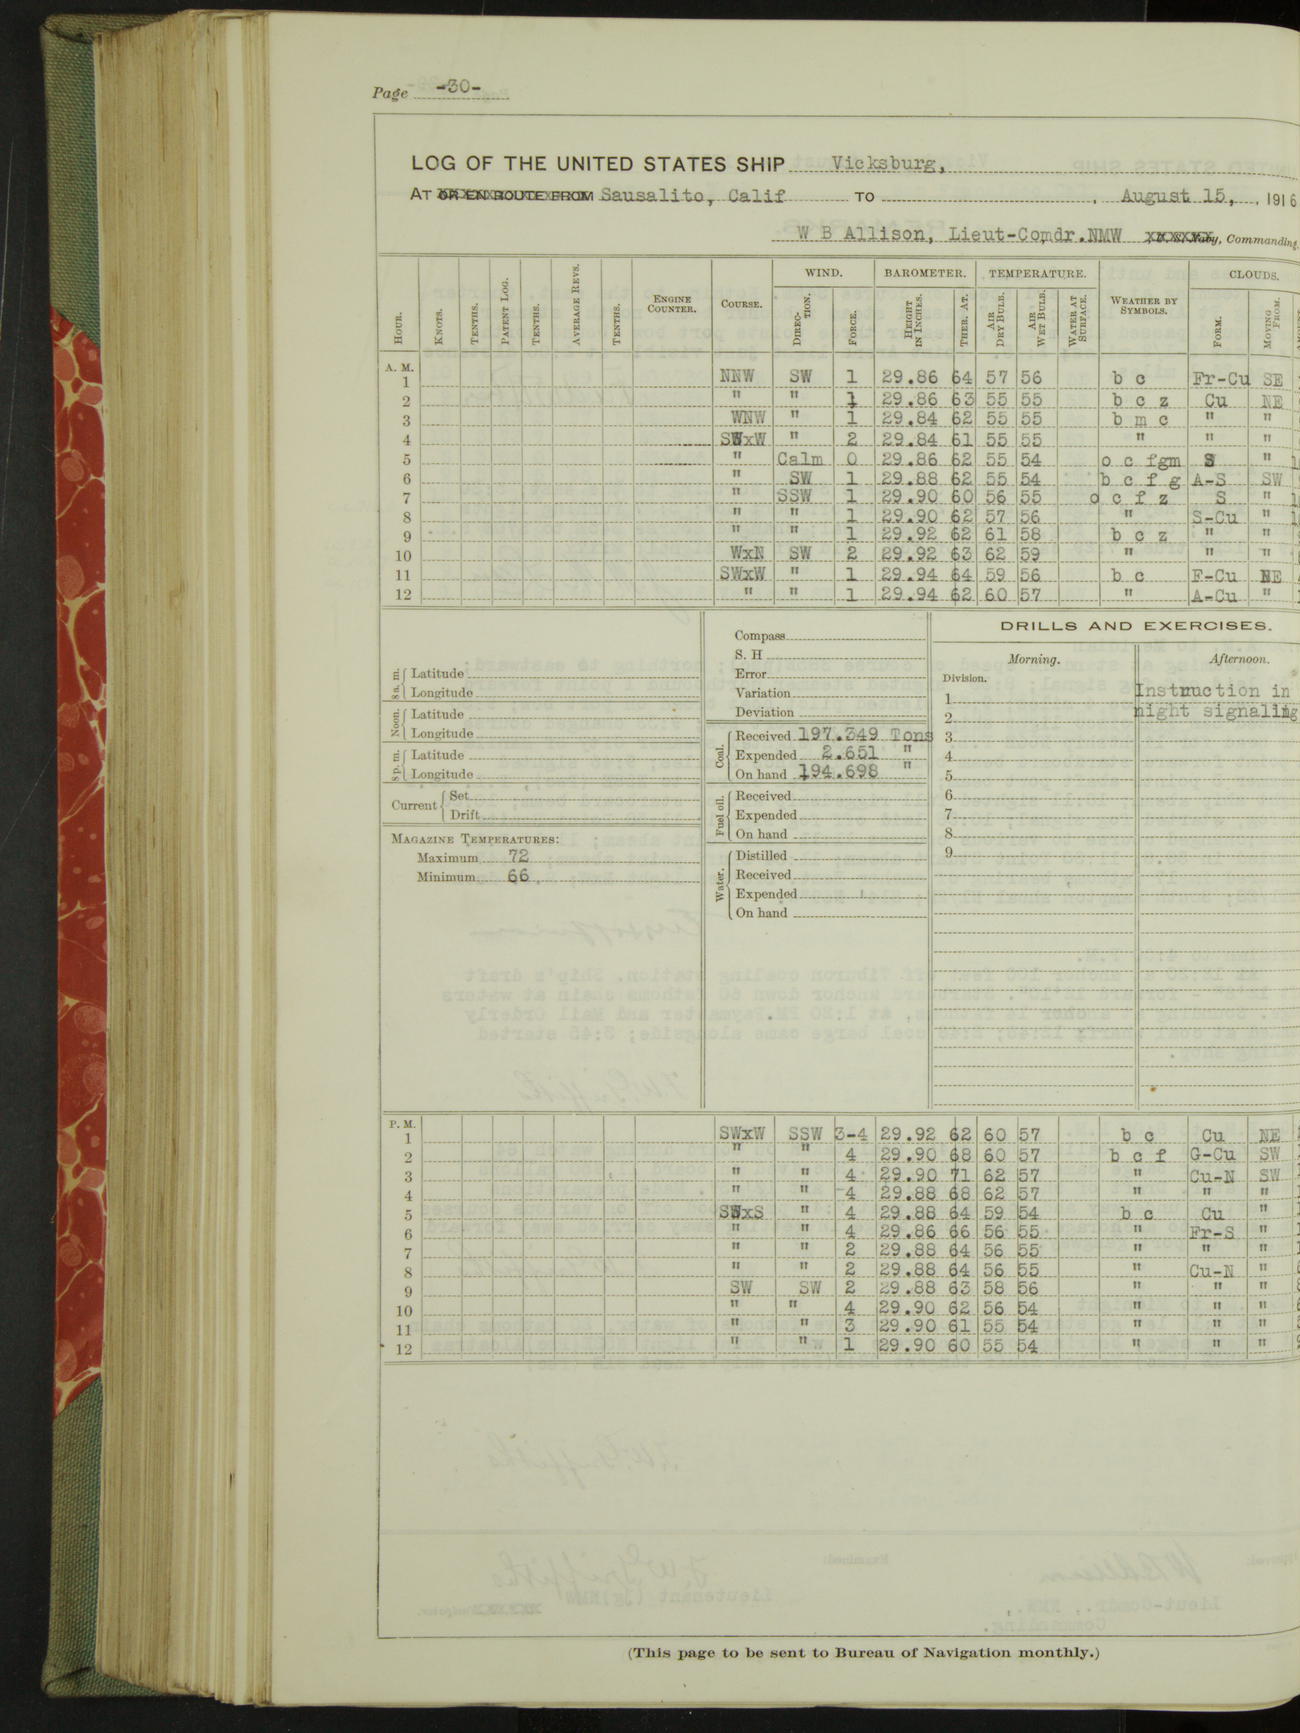 Page -30-
LOG OF THE UNITED STATES SHIP Vicksburg,
AT OR EN ROUTE FROM Sausalito, Calif TO , August 15, , 1916
W B Allison, Lieut-Comdr.NMW Navy, Commanding.
HOUR. KNOTS. TENTHS. PATENT LOG. TENTHS. AVERAGE REVS. TENTHS. ENGINE COUNTER. COURSE. WIND. DIRECTION. FORCE. BAROMETER. HEIGHT IN INCHES. THER. AT. TEMPERATURE. AIR DRY BULB. AIR WET BULB. WATER AT SURFACE. WEATHER BY SYMBOLS. CLOUDS. FORM. MOVING FROM.
A. M.
1 NNW SW 1 29.86 64 57 56 b c Fr-Cu SE
2 " " 1 29.86 63 55 55 b c z Cu NE
3 WNW " 1 29.84 62 55 55 b m c " "
4 SWxW " 2 29.84 61 55 55 " " "
5 " Calm 0 29.86 62 55 54 o c fgm S "
6 " SW 1 29.88 62 55 54 b c f g A-S SW
7 " SSW 1 29.90 60 56 55 o c f z S "
8 " " 1 29.90 62 57 56 " S-Cu "
9 " " 1 29.92 62 61 58 b c z " "
10 WxN SW 2 29.92 63 62 59 " " "
11 SWxW " 1 29.94 64 59 56 b c F-Cu NE
12 " " 1 29.94 62 60 57 " A-Cu "
8 a. m. Latitude
Longitude
Noon. Latitude
Longitude
8 p. m. Latitude
Longitude
Current Set
Drift
MAGAZINE TEMPERATURES:
Maximum 72
Minimum 66
Compass
S. H
Error
Variation
Deviation
Coal. Received 197.349 Tons
Expended 2.651 "
On hand 194.698 "
Fuel oil. Received
Expended
On hand
Water. Distilled
Received
Expended
On hand
DRILLS AND EXERCISES.
Morning. Afternoon.
Division.
1 Instruction in
2 night signaling
3
4
5
6
7
8
9
P. M.
1 SWxW SSW 3-4 29.92 62 60 57 b c Cu NE
2 " " 4 29.90 68 60 57 b c f G-Cu SW
3 " " 4 29.90 71 62 57 " Cu-N SW
4 " " 4 29.88 68 62 57 " " "
5 SWxS " 4 29.88 64 59 54 b c Cu "
6 " " 4 29.86 66 56 55 " Fr-S "
7 " " 2 29.88 64 56 55 " " "
8 " " 2 29.88 64 56 55 " Cu-N "
9 SW SW 2 29.88 63 58 56 " " "
10 " " 4 29.90 62 56 54 " " "
11 " " 3 29.90 61 55 54 " " "
12 " " 1 29.90 60 55 54 " " "
(This page to be sent to Bureau of Navigation monthly.)